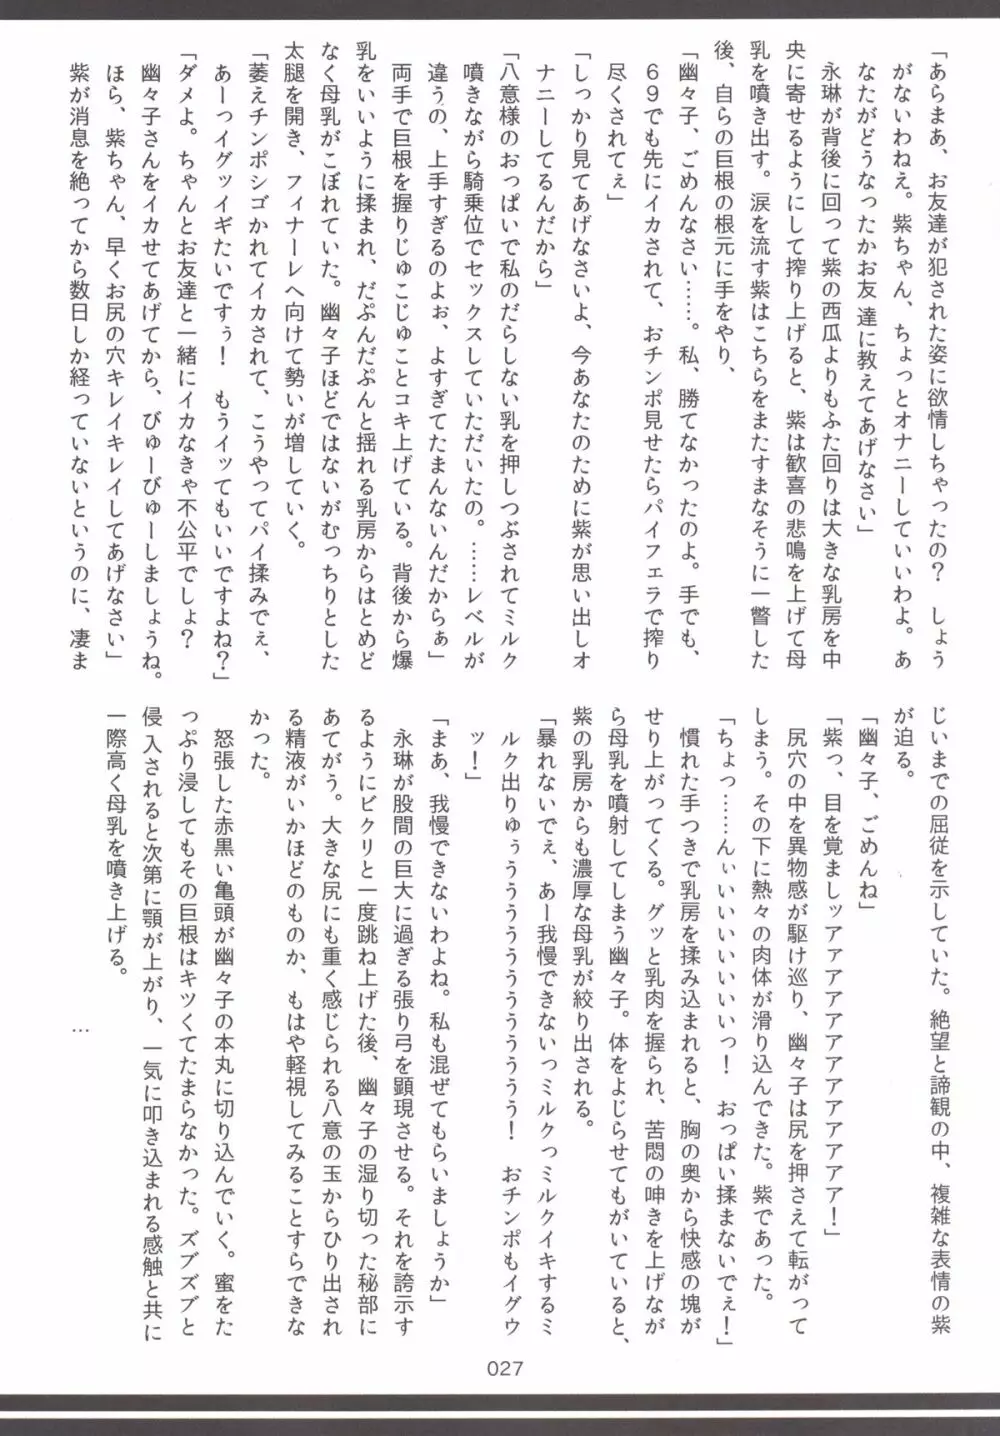 「あらまあ、お友達が犯された姿に欲情しちゃったの？　しょう
がないわねえ。紫ちゃん、ちょっとオナニーしていいわよ。あ
なたがどうなったかお友達に教えてあげなさい」
永琳が背後に回って紫の西瓜よりもふた回りは大きな乳房を中
央に寄せるようにして搾り上げると、紫は歓喜の悲鳴を上げて母
乳を噴き出す。涙を流す紫はこちらをまたすまなそうに一瞥した
後、自らの巨根の根元に手をやり、
「幽々子、ごめんなさい……。私、勝てなかったのよ。手でも、
６９でも先にイカされて、おチンポ見せたらパイフェラで搾り
尽くされてぇ」
「しっかり見てあげなさいよ、今あなたのために紫が思い出しオ
ナニーしてるんだから」
「八意様のおっぱいで私のだらしない乳を押しつぶされてミルク
噴きながら騎乗位でセックスしていただいたの。……レベルが
違うの、上手すぎるのよぉ、よすぎてたまんないんだからぁ」
両手で巨根を握りじゅこじゅことコキ上げている。背後から爆
乳をいいように揉まれ、だぷんだぷんと揺れる乳房からはとめど
なく母乳がこぼれていた。幽々子ほどではないがむっちりとした
太腿を開き、フィナーレへ向けて勢いが増していく。
「萎えチンポシゴかれてイカされて、こうやってパイ揉みでぇ、
あーっイグッイギたいですぅ！　もうイッてもいいですよね？」
「ダメよ。ちゃんとお友達と一緒にイカなきゃ不公平でしょ？
幽々子さんをイカせてあげてから、びゅーびゅーしましょうね。
ほら、紫ちゃん、早くお尻の穴キレイキレイしてあげなさい」
紫が消息を絶ってから数日しか経っていないというのに、凄ま
じいまでの屈従を示していた。絶望と諦観の中、複雑な表情の紫
が迫る。
「幽々子、ごめんね」
「紫っ、目を覚ましッアァアアアアアアアアアア！」
尻穴の中を異物感が駆け巡り、幽々子は尻を押さえて転がって
しまう。その下に熱々の肉体が滑り込んできた。紫であった。
「ちょっ……んぃいいいいいいいっ！　おっぱい揉まないでぇ！」
慣れた手つきで乳房を揉み込まれると、胸の奥から快感の塊が
せり上がってくる。グッと乳肉を握られ、苦悶の呻きを上げなが
ら母乳を噴射してしまう幽々子。体をよじらせてもがいていると、
紫の乳房からも濃厚な母乳が絞り出される。
「暴れないでぇ、あー我慢できないっミルクっミルクイキするミ
ルク出りゅぅうううううううううう！　おチンポもイグウ
ッ！」
「まあ、我慢できないわよね。私も混ぜてもらいましょうか」
永琳が股間の巨大に過ぎる張り弓を顕現させる。それを誇示す
るようにビクリと一度跳ね上げた後、幽々子の湿り切った秘部に
あてがう。大きな尻にも重く感じられる八意の玉からひり出され
る精液がいかほどのものか、もはや軽視してみることすらできな
かった。
怒張した赤黒い亀頭が幽々子の本丸に切り込んでいく。蜜をた
っぷり浸してもその巨根はキツくてたまらなかった。ズブズブと
侵入されると次第に顎が上がり、一気に叩き込まれる感触と共に
一際高く母乳を噴き上げる。
…
027